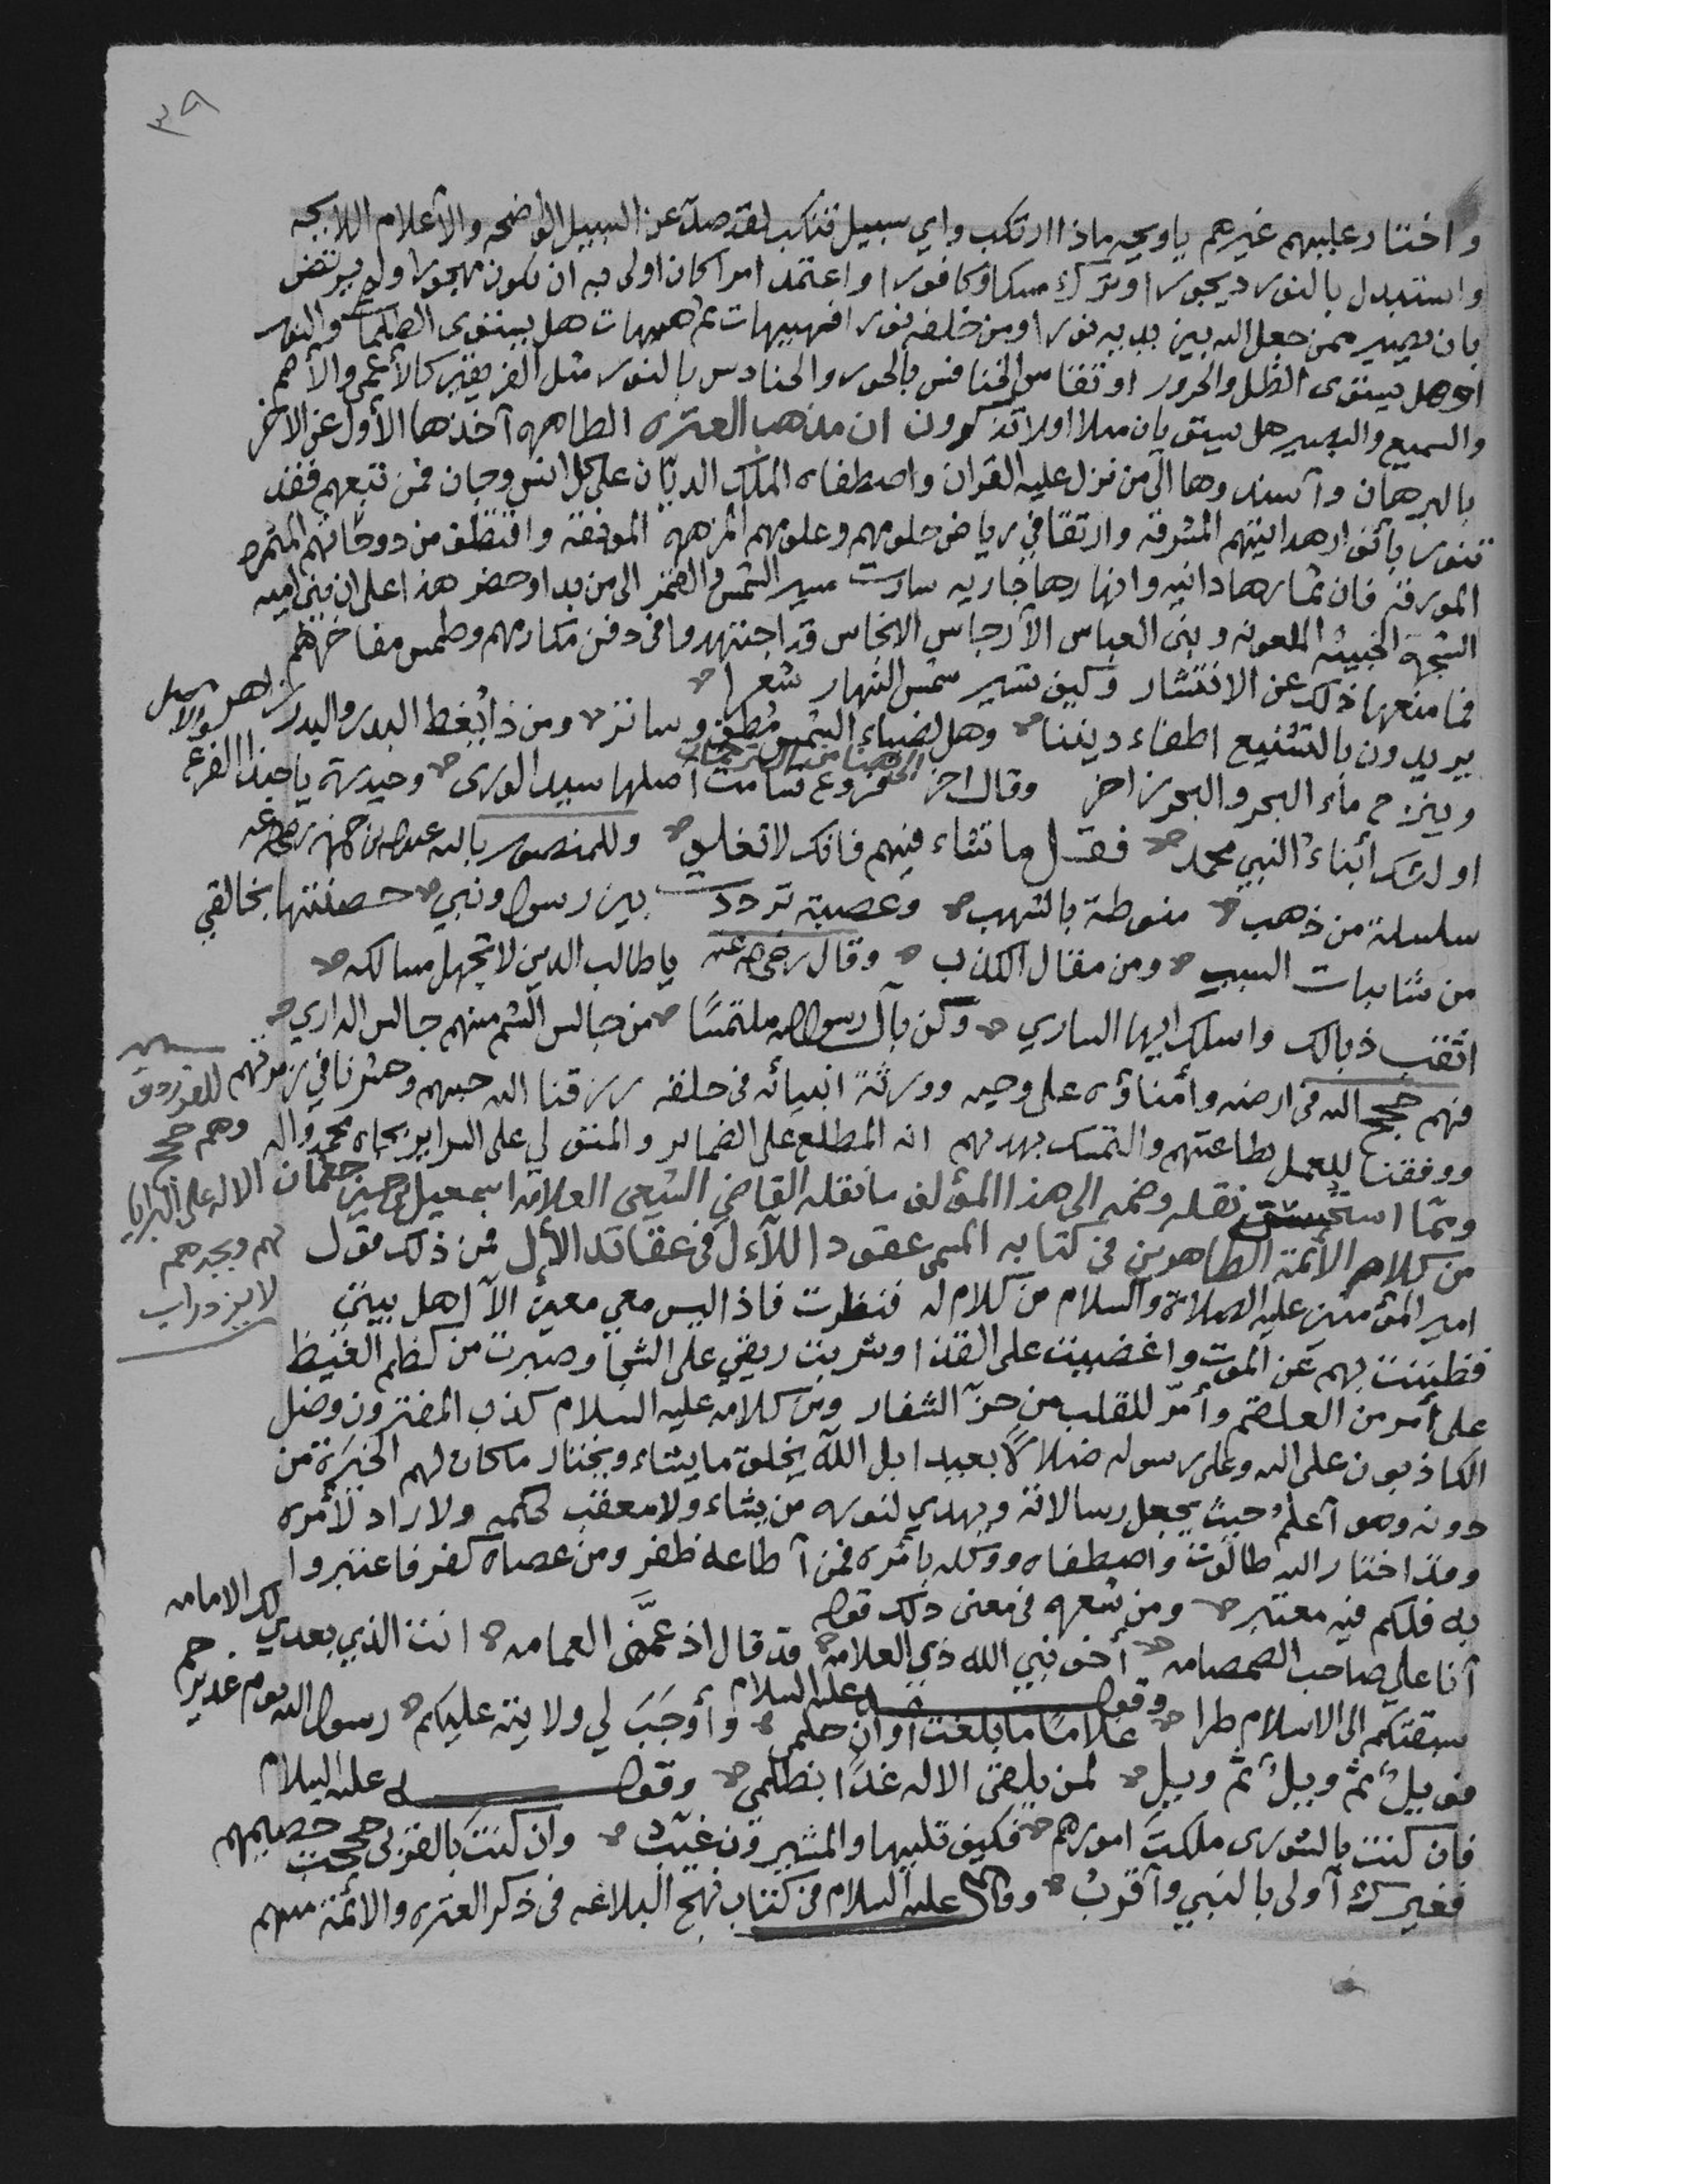 ٣٩
واختار عليهم غيرهم ياويحه ماذا ارتكب واي سبيل تنكب لقد صدّ عن السبيل الواضحه والأعلام اللايحه
واستبدل بالنور ديجورا وترك مسكا وكافورا واعتمد امرا كان اولى به ان يكون مهجورا ولم يرتض
بان يصير ممن جعل الله بين يديه نورا ومن خلفه نورا فهيهات ثم هيهات هل يستوى الظلمات والنور
او هل يستوى الظل والحرور او تقاس الخنافس بالحور والحنادس بالنور مثل الفريقين كالأعمى والأصم
والسميع والبصير هل يستويان مثلا افلا تذكرون ان مذهب العتره الطاهره آخذها الأول عن الآخر
بالبرهان وآسندوها الى من نزل عليه القران واصطفاه الملك الديّان على كل انس وجان فمن تبعهم فقد
تنور بأنوار هدايتهم المشرقة وارتقا في رياض حلومهم وعلومهم المزهره المونقة واقتطف من دوحاتهم المثمره
المورقة فان ثمارها دانيه وانهارها جاريه سارت سير الشمس والقمر الى من بدا وحضر هذا على ان بني اميه
الشجرة الخبيثه الملعونه وبنى العباس الآرجاس الانجاس قد اجتهدوا في دفن مكارمهم وطمس مفاخرهم
فما منعها ذلك عن الانتشار وكيف تستر شمس النهار شعرا
يريدون بالتشنيع اطفاء ديننا وهل لضياء الشمس مُطفٍ وساتر ومن ذا يُغط البدر والبدر زاهر
وينزح ماء البحر والبحر زاخر وقال اخر فروع تسامت اصلها سيد الورى وحيدرة ياحبذا الفرع والاصل
اولئك أبناء النبي محمد فقل ما تشاء فيهم فانك لا تغلو وللمنصور بالله عبدالله بن حمزه رضي الله عنه
سلسلة من ذهب منوطة بالشهب وعصبة ترددت بين رسول ونبي حصنتها بخالقي
من شايبات السبب ومن مقال الكذب وقال رضي الله عنه ياطالب الدين لا تجهل مسالكه
اثقب ذبالك واسلك ايها الساري وكن بآل رسول الله ملتمسًا من جالس الشم منهم جالس الداري
فهم حجج الله في ارضه وأمناؤه على وحيه وورثة انبيائه في خلقه رزقنا الله حبهم وحشرنا في زمرتهم
ووفقنا للعمل بطاعتهم والتمسك بهديهم انه المطلع على الضماير والمتولي على السراير بجاه محمد واله
للفرزدق
وهم حجج
الاله على البرايا
لهم وبجدهم
لا يزدراب
ومما استحسنت نقله وضمه الى هذا المؤلف ما نقله القاضي الشيعي العلامة اسمعيل بن حسين جغمان
من كلام الأئمة الطاهرين في كتابه المسمى عقود اللآءل في عقائد الأل فمن ذلك قول
امير المؤمنين عليه الصلاة والسلام من كلام له فنظرت فاذا ليس معي معين الآ اهل بيتي
فظننت بهم عن الموت واغضيت على القذا وشربت ريقي على الشجا وصبرت من كظم الغيظ
على أمر من العلقم وأمّر للقلب من حزّ الشفار ومن كلامه عليه السلام كذب المفترون وضل
الكاذبون على الله وعلى رسوله ضلالًا بعيدا بل اللّه يخلق ما يشاء ويختار ما كان لهم الخيَرة من
دونه وهو آعلمُ حيث يجعل رسالاته ويهدي لنوره من يشاء ولا معقب لحكمه ولا راد لأمره
وقد اختار الله طالوت واصطفاه ووكله بأمره فمن آطاعه ظفر ومن عصاه كفر فاعتبروا
به فلكم فيه معتبر ومن شعره في معنى ذلك قوله
آنا علي صاحب الصمصامه أخو نبي الله ذي العلامه قد قال اذ عمَّمنى العمامه انت الذي بعدي لك الامامه
وقوله عليه السلام
سبقتكم الى الاسلام طرا غلامًا ما بلغت أوان حلمي وأوجَبَ لي ولايته عليكم رسول الله يوم غدير خم
فويلٌ ثمّ ويلٌ ثمّ ويلٌ لمن يلقى الاله غدًا بظلمي وقوله عليه السلام
فان كنت بالشورى ملكتَ امورهم فكيف تليها والمشيرون غيّب وان كنت بالقربى حججت خصيمهم
فغيرك آولى بالنبي وآقربُ وقال عليه السلام في كتاب نهج البلاغه في ذكر العتره والأئمة منهم